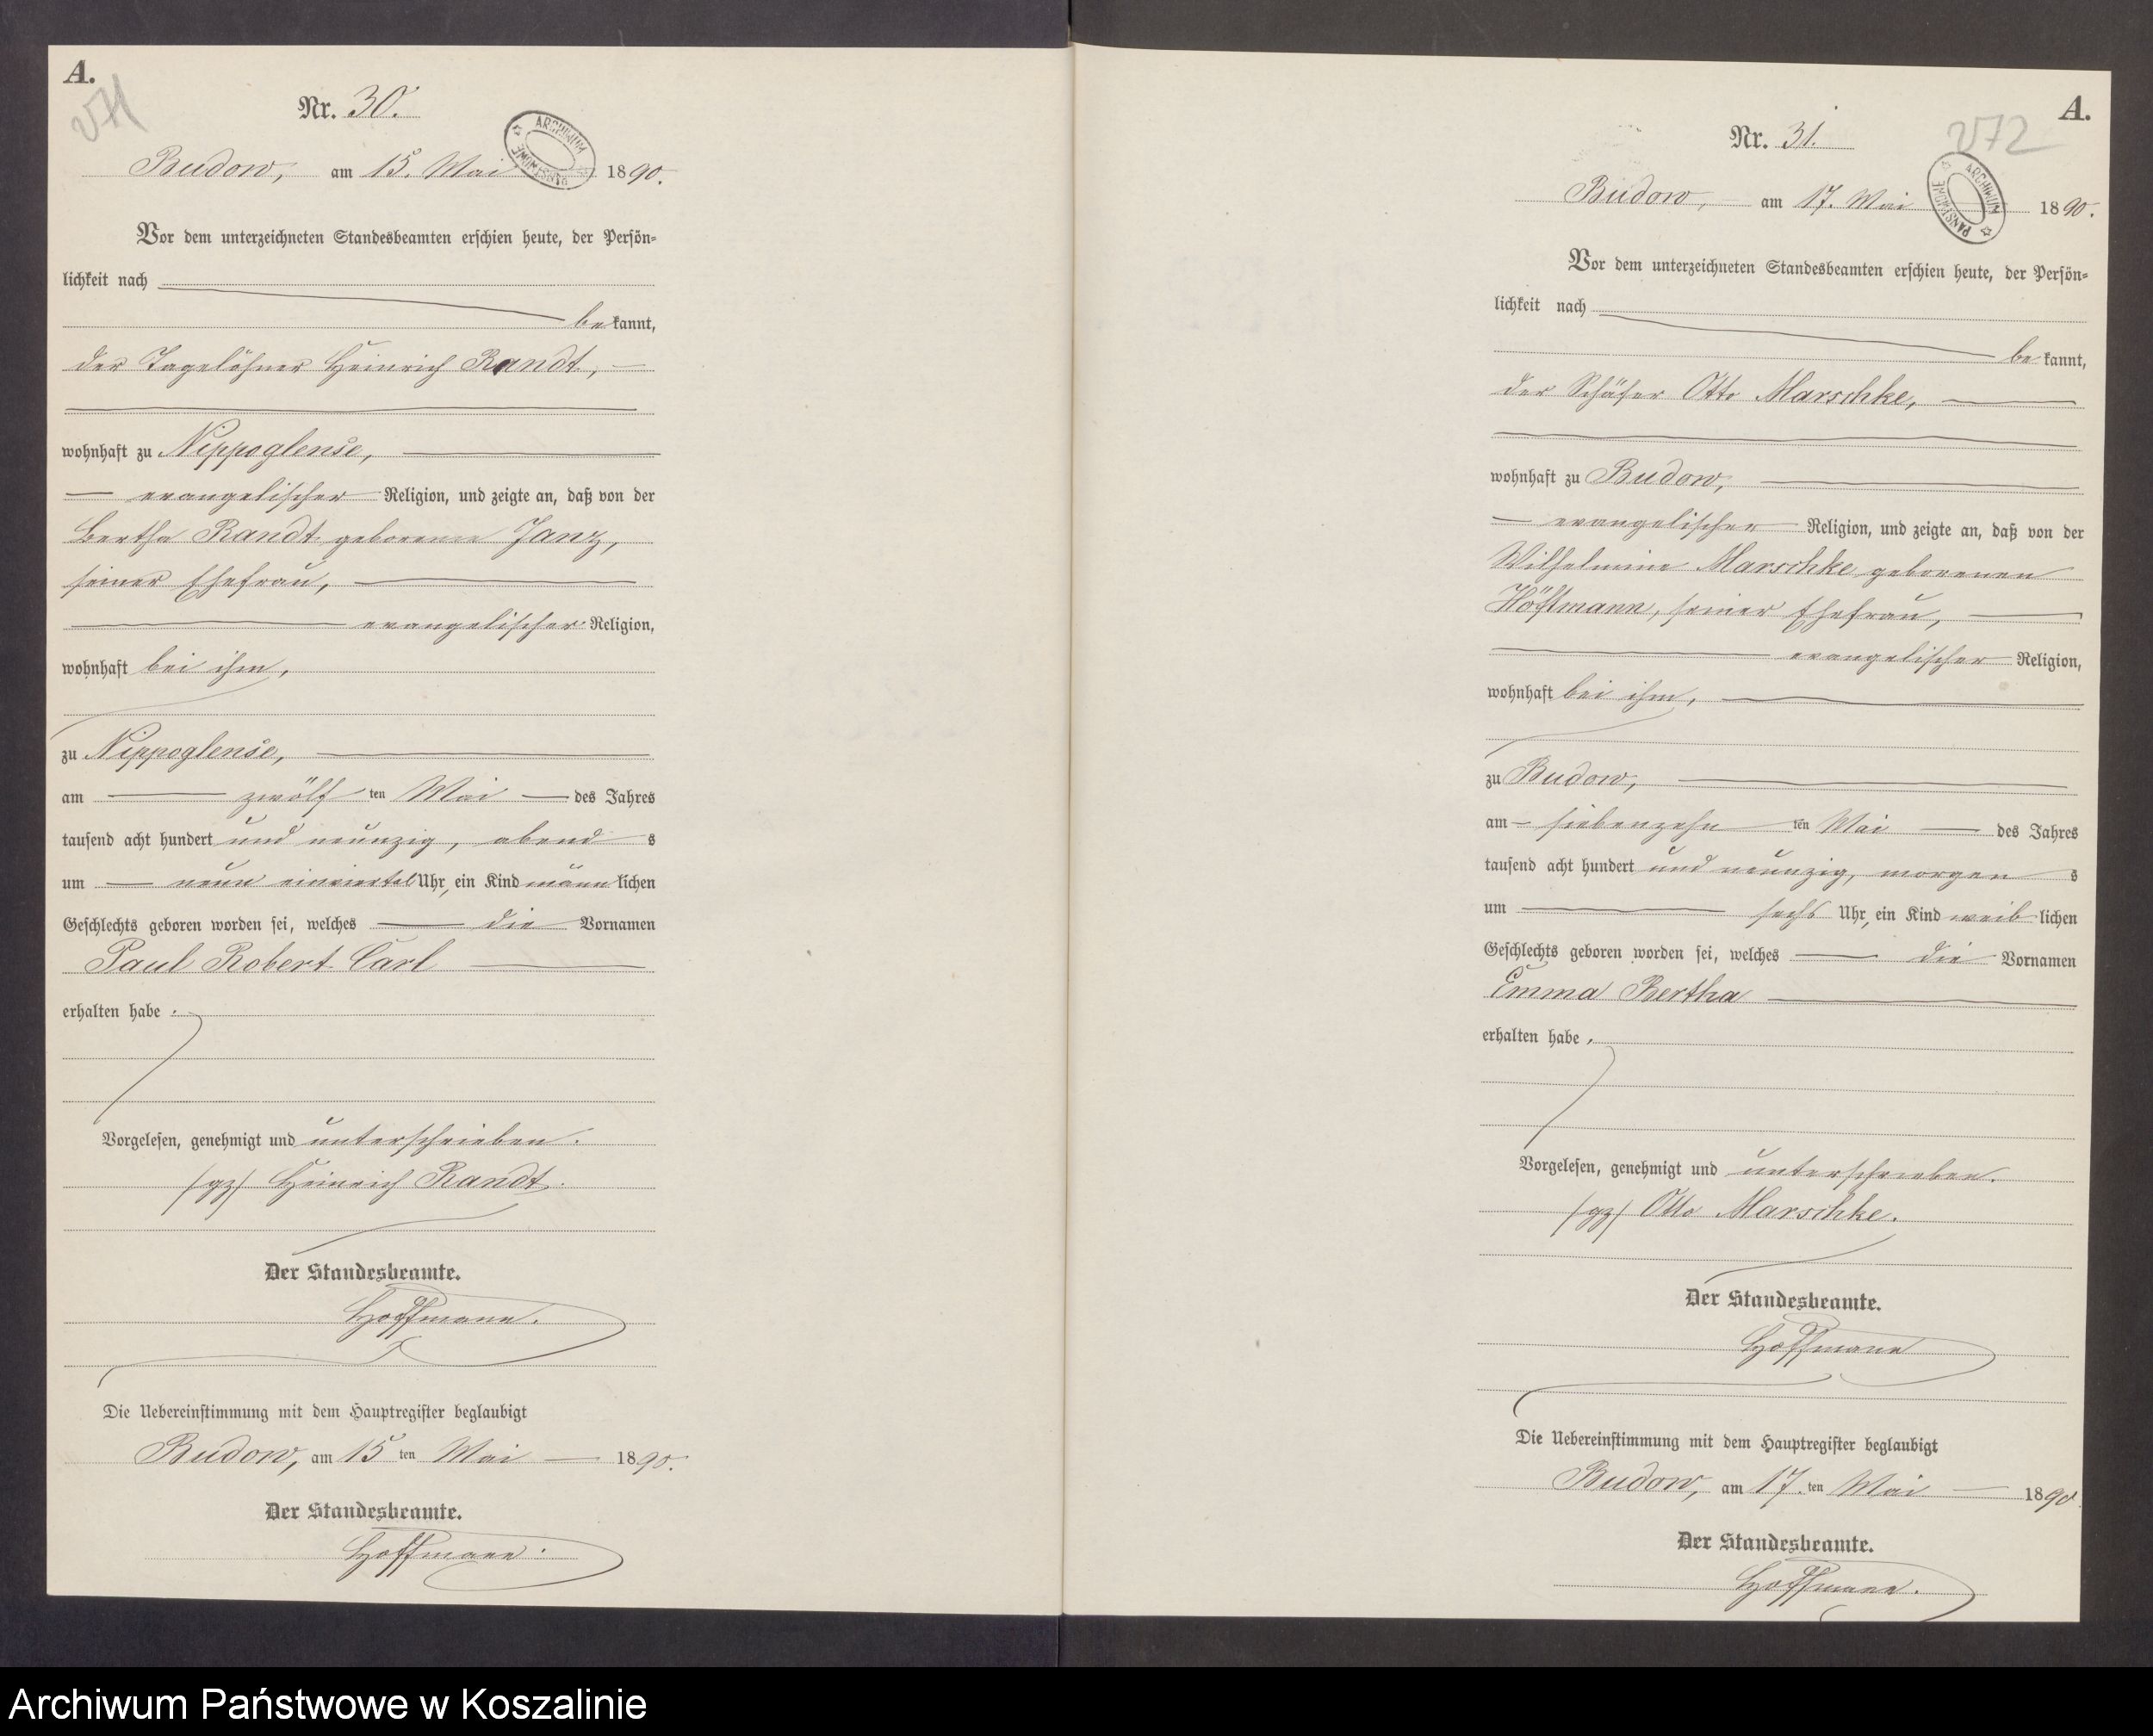 A.
V71
Nr. 30.
ARCHIWUM PAŃSTWOWE
Budow, am 15. Mai 1890.
Vor dem unterzeichneten Standesbeamten erschien heute, der Persön=
lichkeit nach
bekannt,
der Tagelöhner Heinrich Randt,
wohnhaft zu Nippoglense,
evangelischer Religion, und zeigte an, daß von der
Bertha Randt geborenen Janz,
seiner Ehefrau,
evangelischer Religion,
wohnhaft bei ihm,
zu Nippoglense,
am zwölf ten Mai des Jahres
tausend acht hundert und neunzig, abend s
um neun einviertel Uhr, ein Kind männlichen
Geschlechts geboren worden sei, welches die Vornamen
Paul Robert Carl
erhalten habe.
Vorgelesen, genehmigt und unterschrieben.
/gz/ Heinrich Randt.
Der Standesbeamte.
Hoffmann.
Die Uebereinstimmung mit dem Hauptregister beglaubigt
Budow, am 15 ten Mai 1890.
Der Standesbeamte.
Hoffmann.
A.
V72
Nr. 31.
ARCHIWUM PAŃSTWOWE
Budow, am 17. Mai 1890.
Vor dem unterzeichneten Standesbeamten erschien heute, der Persön=
lichkeit nach
bekannt,
der Schäfer Otto Marschke,
wohnhaft zu Budow,
evangelischer Religion, und zeigte an, daß von der
Wilhelmine Marschke geborenen
Höftmann, seiner Ehefrau,
evangelischer Religion,
wohnhaft bei ihm,
zu Budow,
am siebenzehn ten Mai des Jahres
tausend acht hundert und neunzig, morgen s
um sechs Uhr, ein Kind weiblichen
Geschlechts geboren worden sei, welches die Vornamen
Emma Bertha
erhalten habe.
Vorgelesen, genehmigt und unterschrieben.
/gz/ Otto Marschke.
Der Standesbeamte.
Hoffmann
Die Uebereinstimmung mit dem Hauptregister beglaubigt
Budow, am 17. ten Mai 1890
Der Standesbeamte.
Hoffmann.
Archiwum Państwowe w Koszalinie